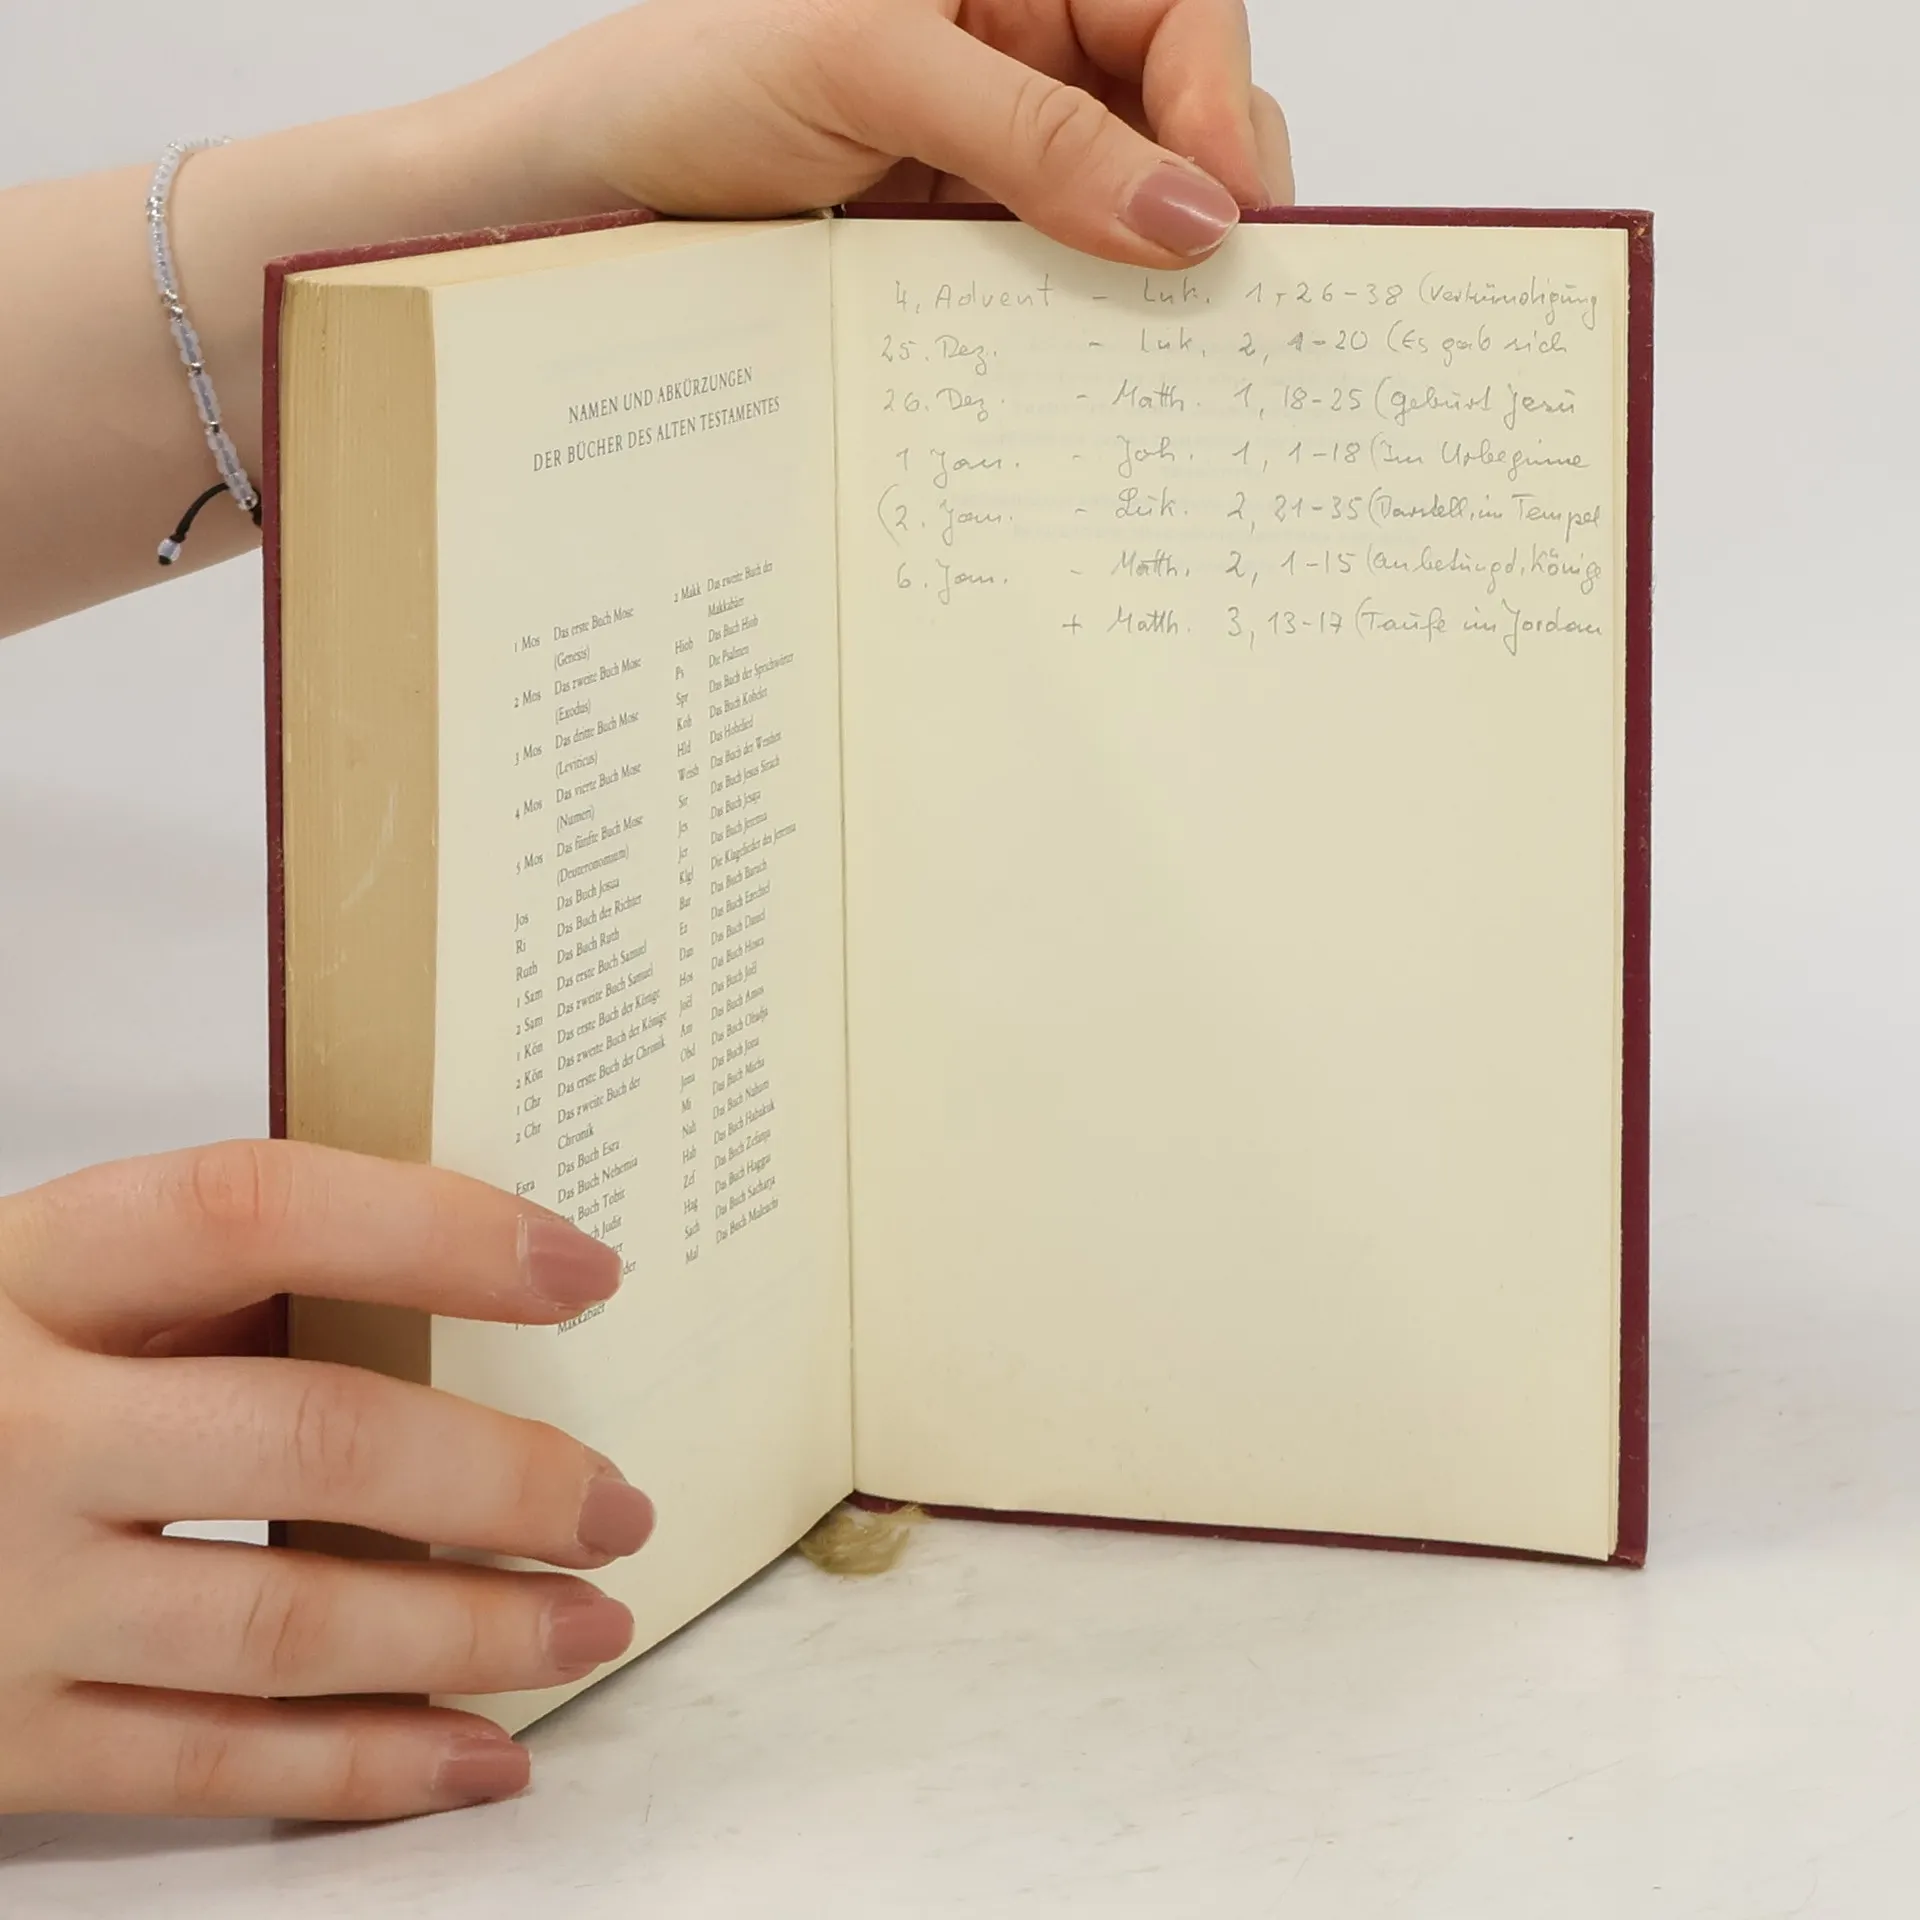 NAMEN UND ABKÜRZUNGEN
DER BÜCHER DES ALTEN TESTAMENTES
1 Mos Das erste Buch Mose
(Genesis)
2 Mos Das zweite Buch Mose
(Exodus)
3 Mos Das dritte Buch Mose
(Leviticus)
4 Mos Das vierte Buch Mose
(Numeri)
5 Mos Das fünfte Buch Mose
(Deuteronomium)
Jos Das Buch Josua
Ri Das Buch der Richter
Ruth Das Buch Ruth
1 Sam Das erste Buch Samuel
2 Sam Das zweite Buch Samuel
1 Kön Das erste Buch der Könige
2 Kön Das zweite Buch der Könige
1 Chr Das erste Buch der Chronik
2 Chr Das zweite Buch der
Chronik
Esra Das Buch Esra
Das Buch Nehemia
Buch Tobit
Judit
der
Makkabäer
2 Makk Das zweite Buch der
Makkabäer
Hiob Das Buch Hiob
Ps Die Psalmen
Spr Das Buch der Sprichwörter
Koh Das Buch Kohelet
Hld Das Hohelied
Weish Das Buch der Weisheit
Sir Das Buch Jesus Sirach
Jes Das Buch Jesaja
Jer Das Buch Jeremia
Klgl Die Klagelieder des Jeremia
Bar Das Buch Baruch
Ez Das Buch Ezechiel
Dan Das Buch Daniel
Hos Das Buch Hosea
Joël Das Buch Joël
Am Das Buch Amos
Obd Das Buch Obadja
Jona Das Buch Jona
Mi Das Buch Micha
Nah Das Buch Nahum
Hab Das Buch Habakuk
Zef Das Buch Zefanja
Hag Das Buch Haggai
Sach Das Buch Sacharja
Mal Das Buch Maleachi
4. Advent - Luk. 1, 26-38 (Verkündigung
25. Dez. - Luk. 2, 1-20 (Es gab sich
26. Dez. - Matth. 1, 18-25 (Geburt Jesu
1 Jan. - Joh. 1, 1-18 (Im Urbeginne
(2. Jan. - Luk. 2, 21-35 (Darstell. im Tempel
6. Jan. - Matth. 2, 1-15 (Anbetung d. Könige
+ Matth. 3, 13-17 (Taufe im Jordan